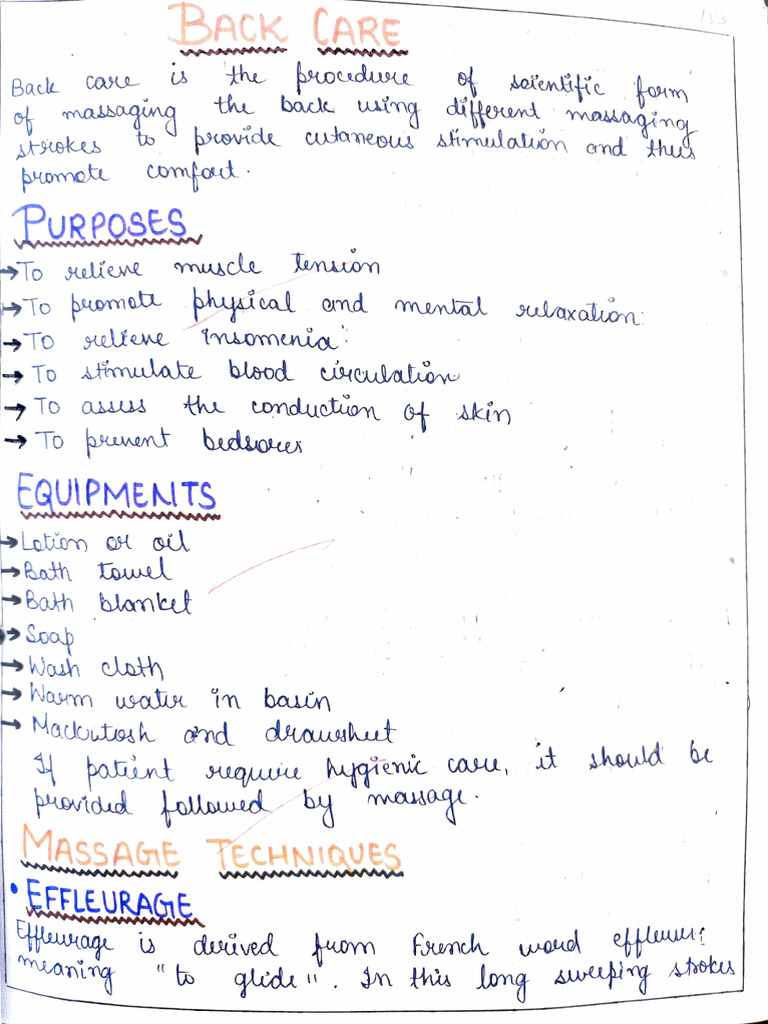 BACK CARE
Back care is the procedure of scientific form
of massaging the back using different massaging
strokes to provide cutaneous stimulation and thus
promote comfort.
PURPOSES
→ To relieve muscle tension
→ To promote physical and mental relaxation.
→ To relieve insomenia.
→ To stimulate blood circulation
→ To assess the conduction of skin
→ To prevent bedsores
EQUIPMENTS
→ Lotion or oil
→ Bath towel
→ Bath blanket
→ Soap
→ Wash cloth
→ Warm water in basin
→ Mackintosh and drawsheet
If patient require hygienic care, it should be
provided followed by massage.
MASSAGE TECHNIQUES
• EFFLEURAGE
Effleurage is derived from French word
meaning "to glide". In this long sweeping strokes